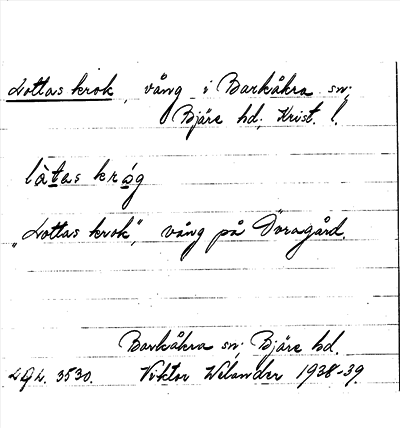 Lottas krok, vång i Barkåkra sn;
Bjäre hd; Krist. l.
làtas krǫ́g
"Lottas krok", vång på Döragård.
Barkåkra sn; Bjäre hd.
3530. Viktor Welander 1938-39.